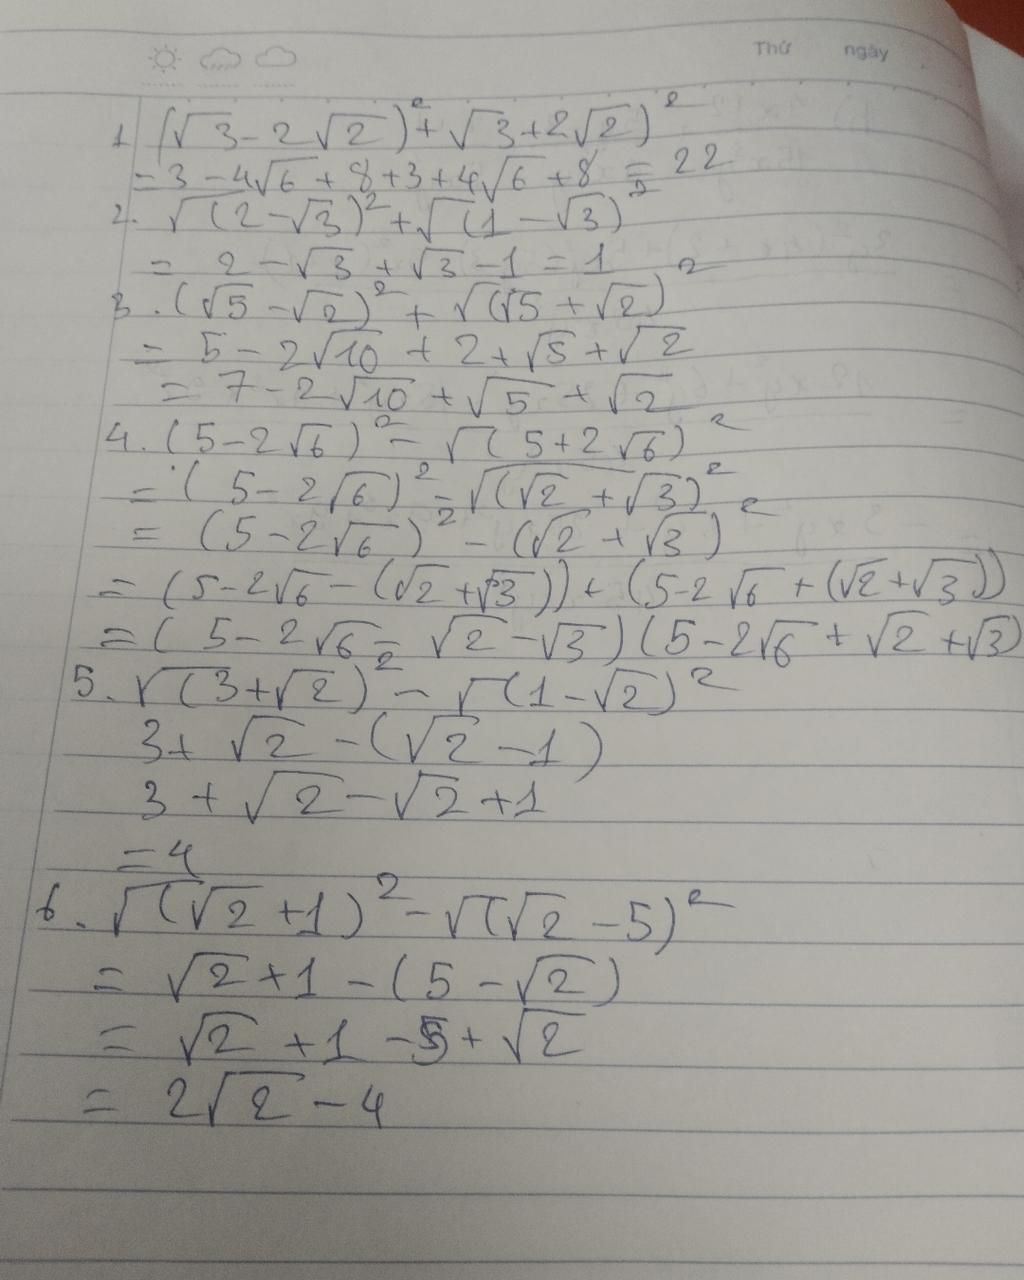 Thứ ngày
1 (√3 - 2√2)² + √3 + 2√2)²
= 3 - 4√6 + 8 + 3 + 4√6 + 8 = 22
2. √(2 - √3)² + √(1 - √3)²
= 2 - √3 + √3 - 1 = 1
3. (√5 - √2)² + √(√5 + √2)²
= 5 - 2√10 + 2 + √5 + √2
= 7 - 2√10 + √5 + √2
4. (5 - 2√6)² - √(5 + 2√6)²
= (5 - 2√6)² - √(√2 + √3)²
= (5 - 2√6)² - (√2 + √3)²
= (5 - 2√6 - (√2 + √3)) + (5 - 2√6 + (√2 + √3))
= (5 - 2√6 - √2 - √3)(5 - 2√6 + √2 + √3)
5. √(3 + √2)² - √(1 - √2)²
3 + √2 - (√2 - 1)
3 + √2 - √2 + 1
= 4
6. √(√2 + 1)² - √(√2 - 5)²
= √2 + 1 - (5 - √2)
= √2 + 1 - 5 + √2
= 2√2 - 4